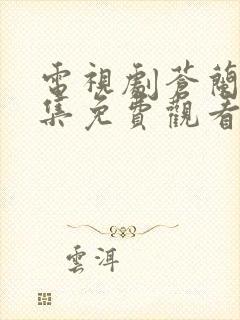 電視劇蒼蘭
集免費觀看
雲洱